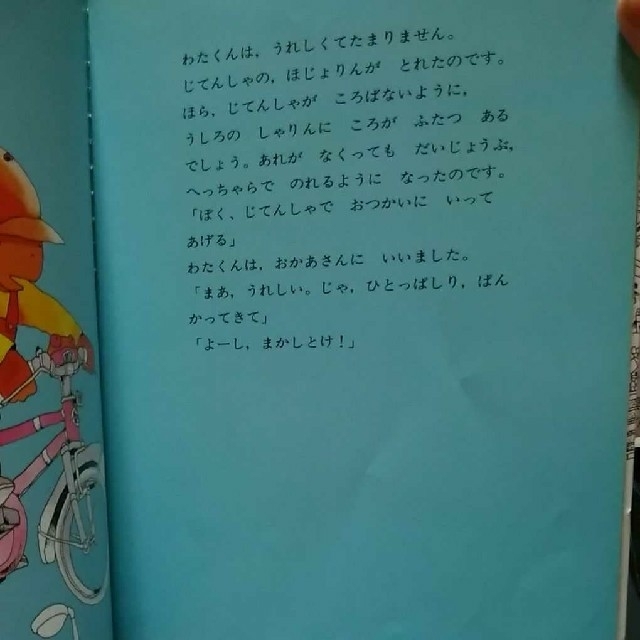 わたくんは，うれしくてたまりません。
じてんしゃの，ほじょりんが　とれたのです。
ほら，じてんしゃが　ころばないように，
うしろの　しゃりんに　ころが　ふたつ　ある
でしょう。あれが　なくっても　だいじょうぶ，
へっちゃらで　のれるように　なったのです。
「ぼく，じてんしゃで　おつかいに　いって
あげる」
わたくんは，おかあさんに　いいました。
「まあ，うれしい。じゃ，ひとっぱしり，ぱん
かってきて」
「よーし，まかしとけ！」